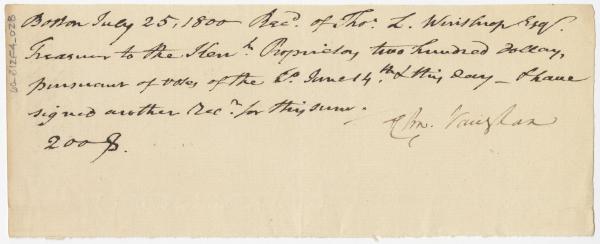 Boston July 25, 1800 Recd. of Thos. L. Winthrop Esqr.
Treasurer to the Kenn.k Proprietors two hundred dollars,
pursuant of votes of the Co. June 14th. & this day — I have
signed another Rect. for this sum.
Chs. Vaughan
200 $.